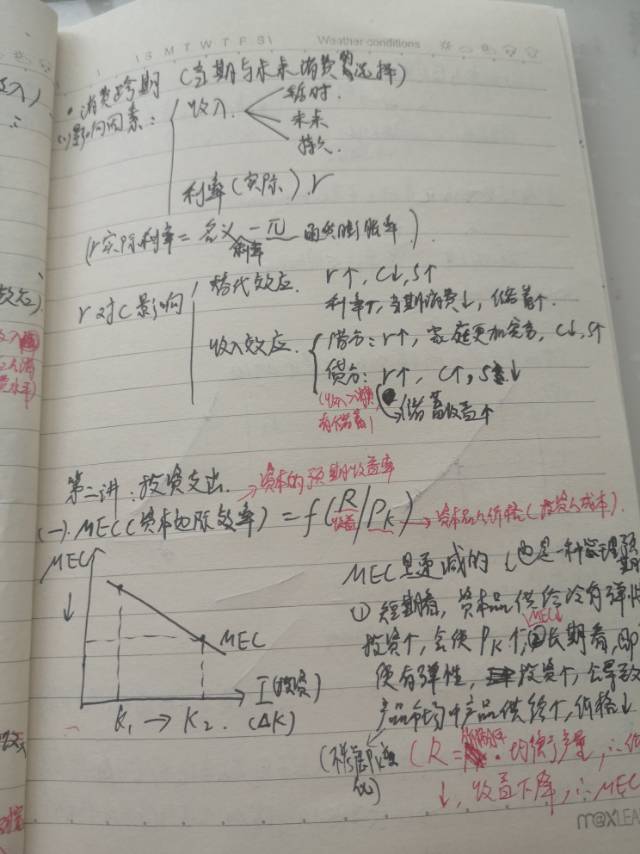 S M T W T F S
Weather conditions
·消费跨期 (当期与未来消费的选择)
(1)影响因素:
收入
暂时.
未来
持久.
利率(实际).r
(r实际利率=名义利率-π 通货膨胀率)
r对C影响
替代效应. r↑, C↓, S↑
利率↑, 当期消费↓, 储蓄↑.
收入效应.
借方: r↑, 家庭更加穷, C↓, S↑
贷方: r↑, C↑, S↓
(收入>消费,
有储蓄)
储蓄收益↑
第二讲: 投资支出.
资本的预期收益率
(一). MEC(资本边际效率) = f(R/PK)
收益
资本品价格(投资成本).
MEC
MEC是递减的 (也是一种
① 短期看, 资本品供给没有弹性
MEC↓
投资↑, 会使PK↑, 长期看, 即
使有弹性, 投资↑, 会导致
产品市场中产品供给↑, 价格↓
MEC
I(投资)
K₁ → K₂. (ΔK)
(R = · 均衡产量, ∴
↓, 收益下降, ∴MEC
m@xLEA